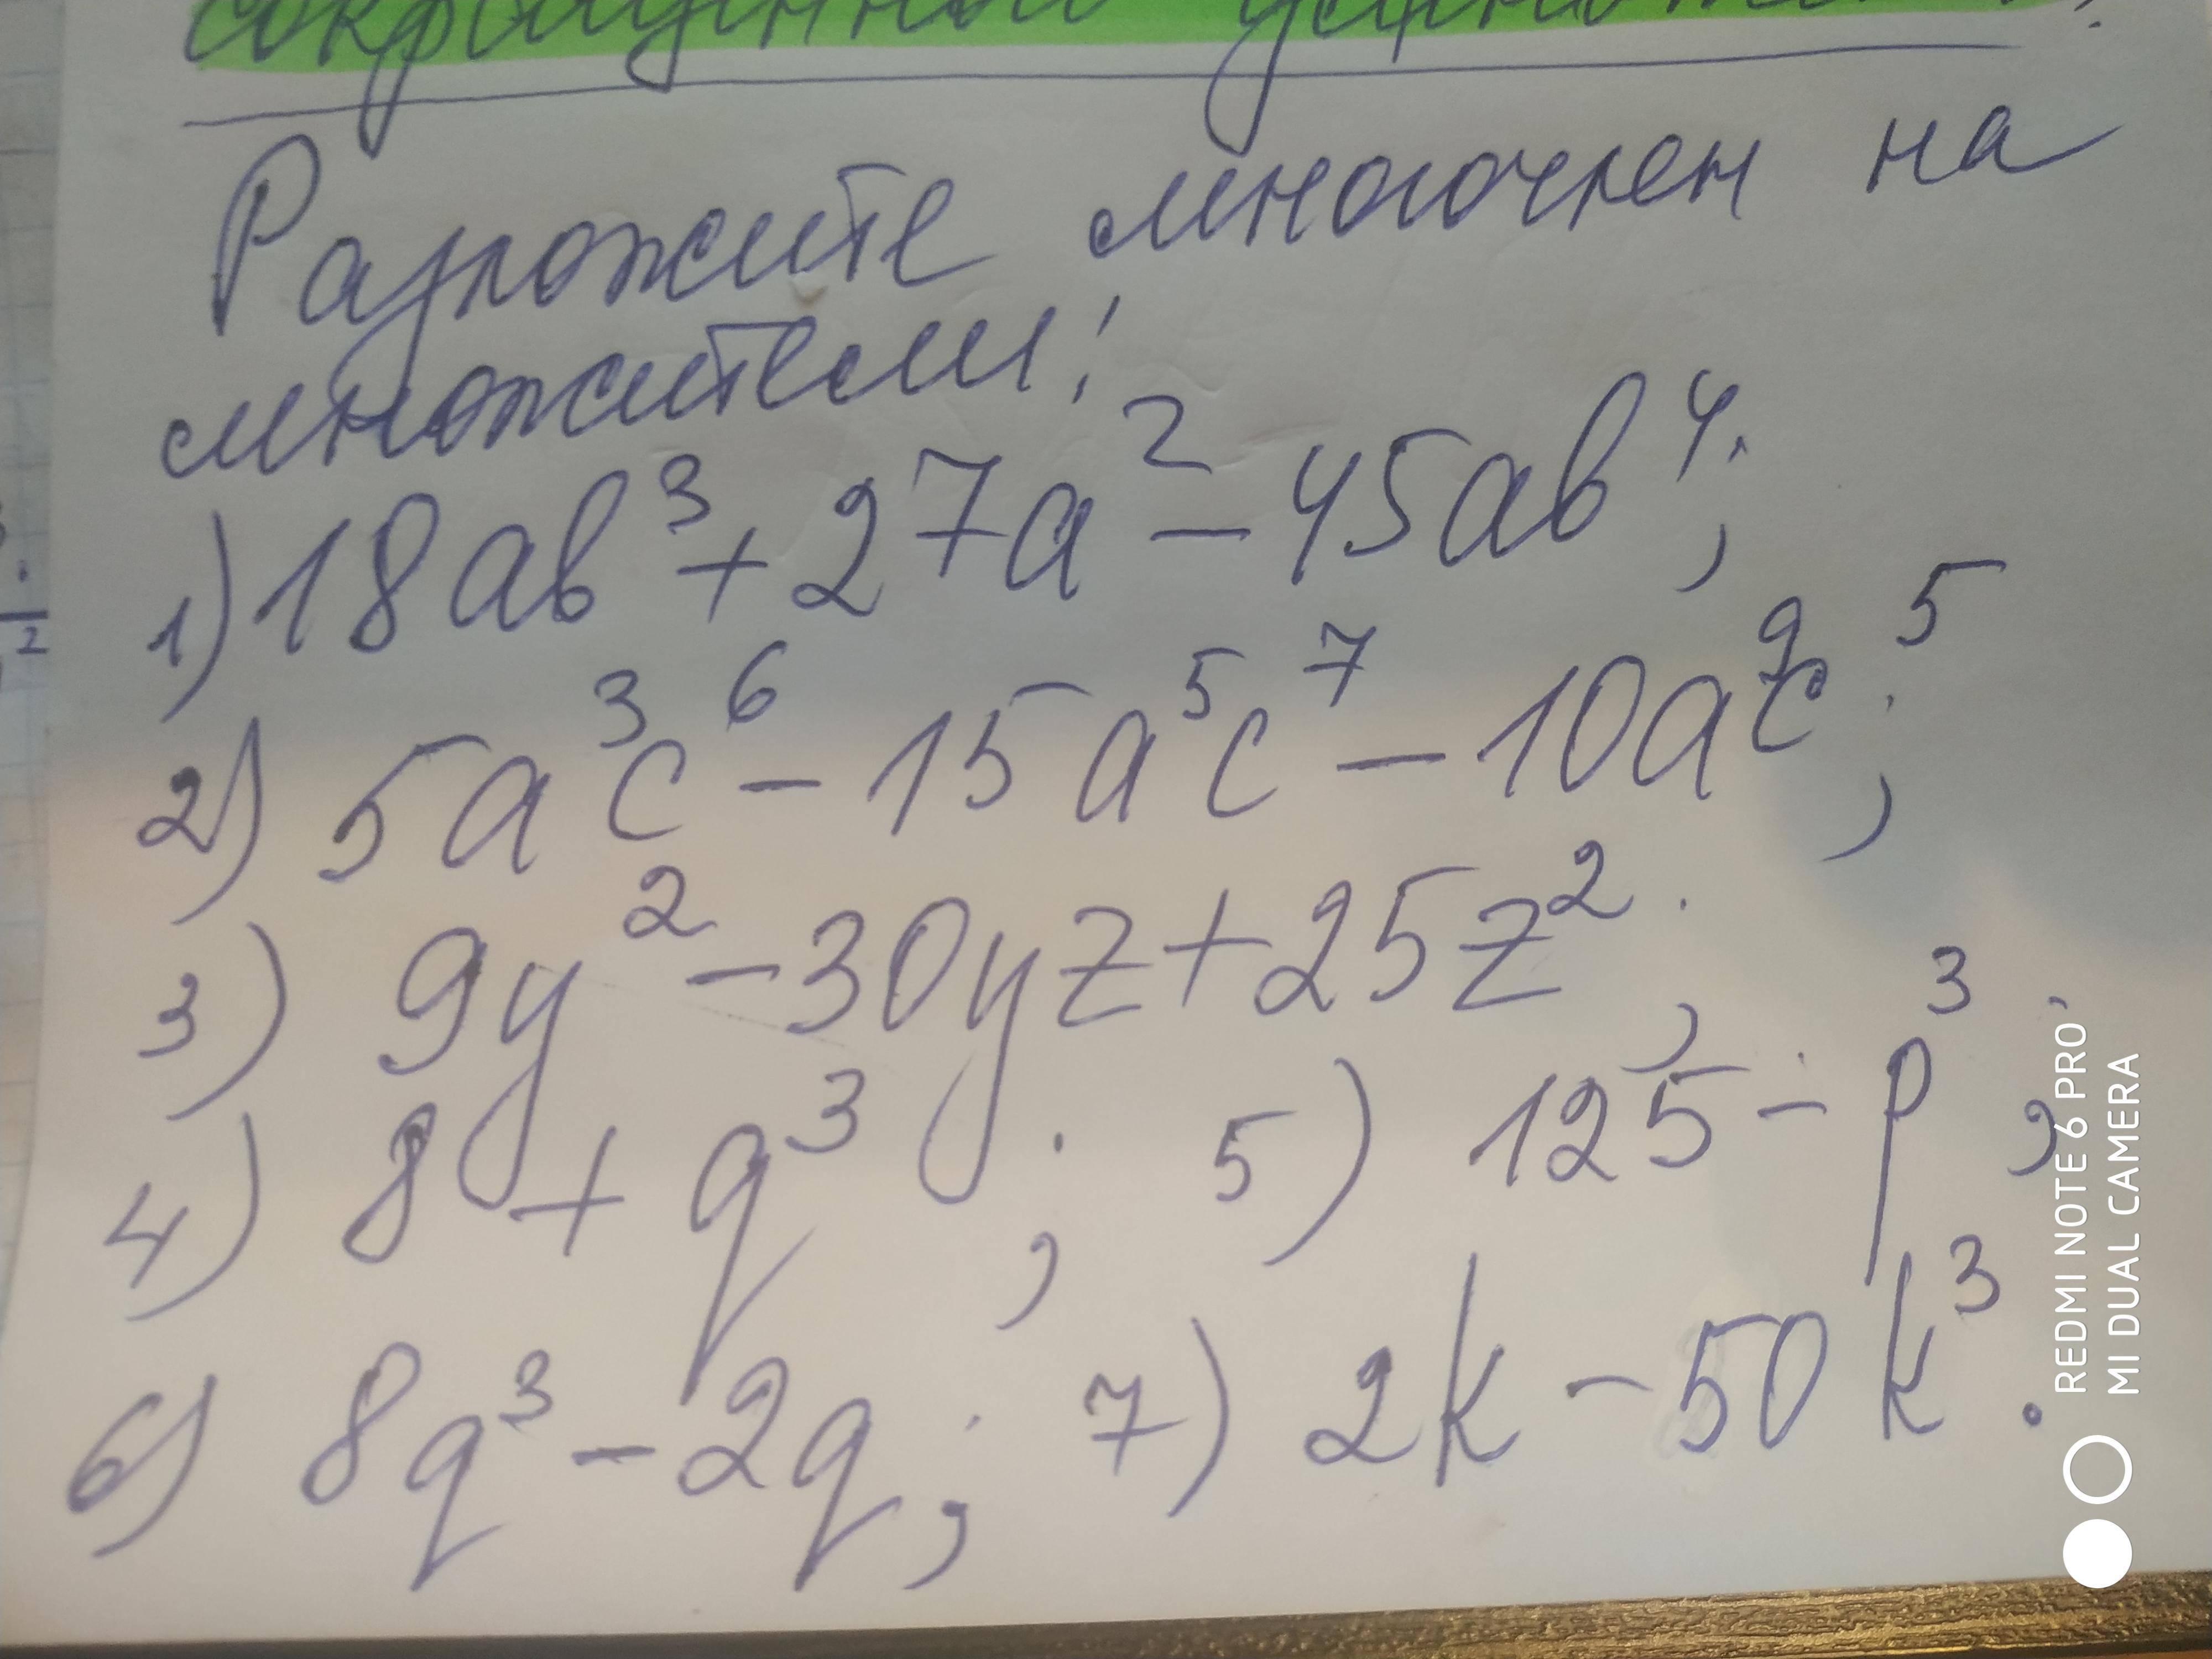 сокращенного умножения:
Разложите многочлен на
множители:
1) 18ab³ + 27a² - 45ab⁴;
2) 5a³c⁶ - 15a⁵c⁷ - 10a⁹c⁵;
3) 9y² - 30yz + 25z²;
4) 8 + q³; 5) 125 - p³;
6) 8q³ - 2q; 7) 2k - 50k³.
REDMI NOTE 6 PRO
MI DUAL CAMERA